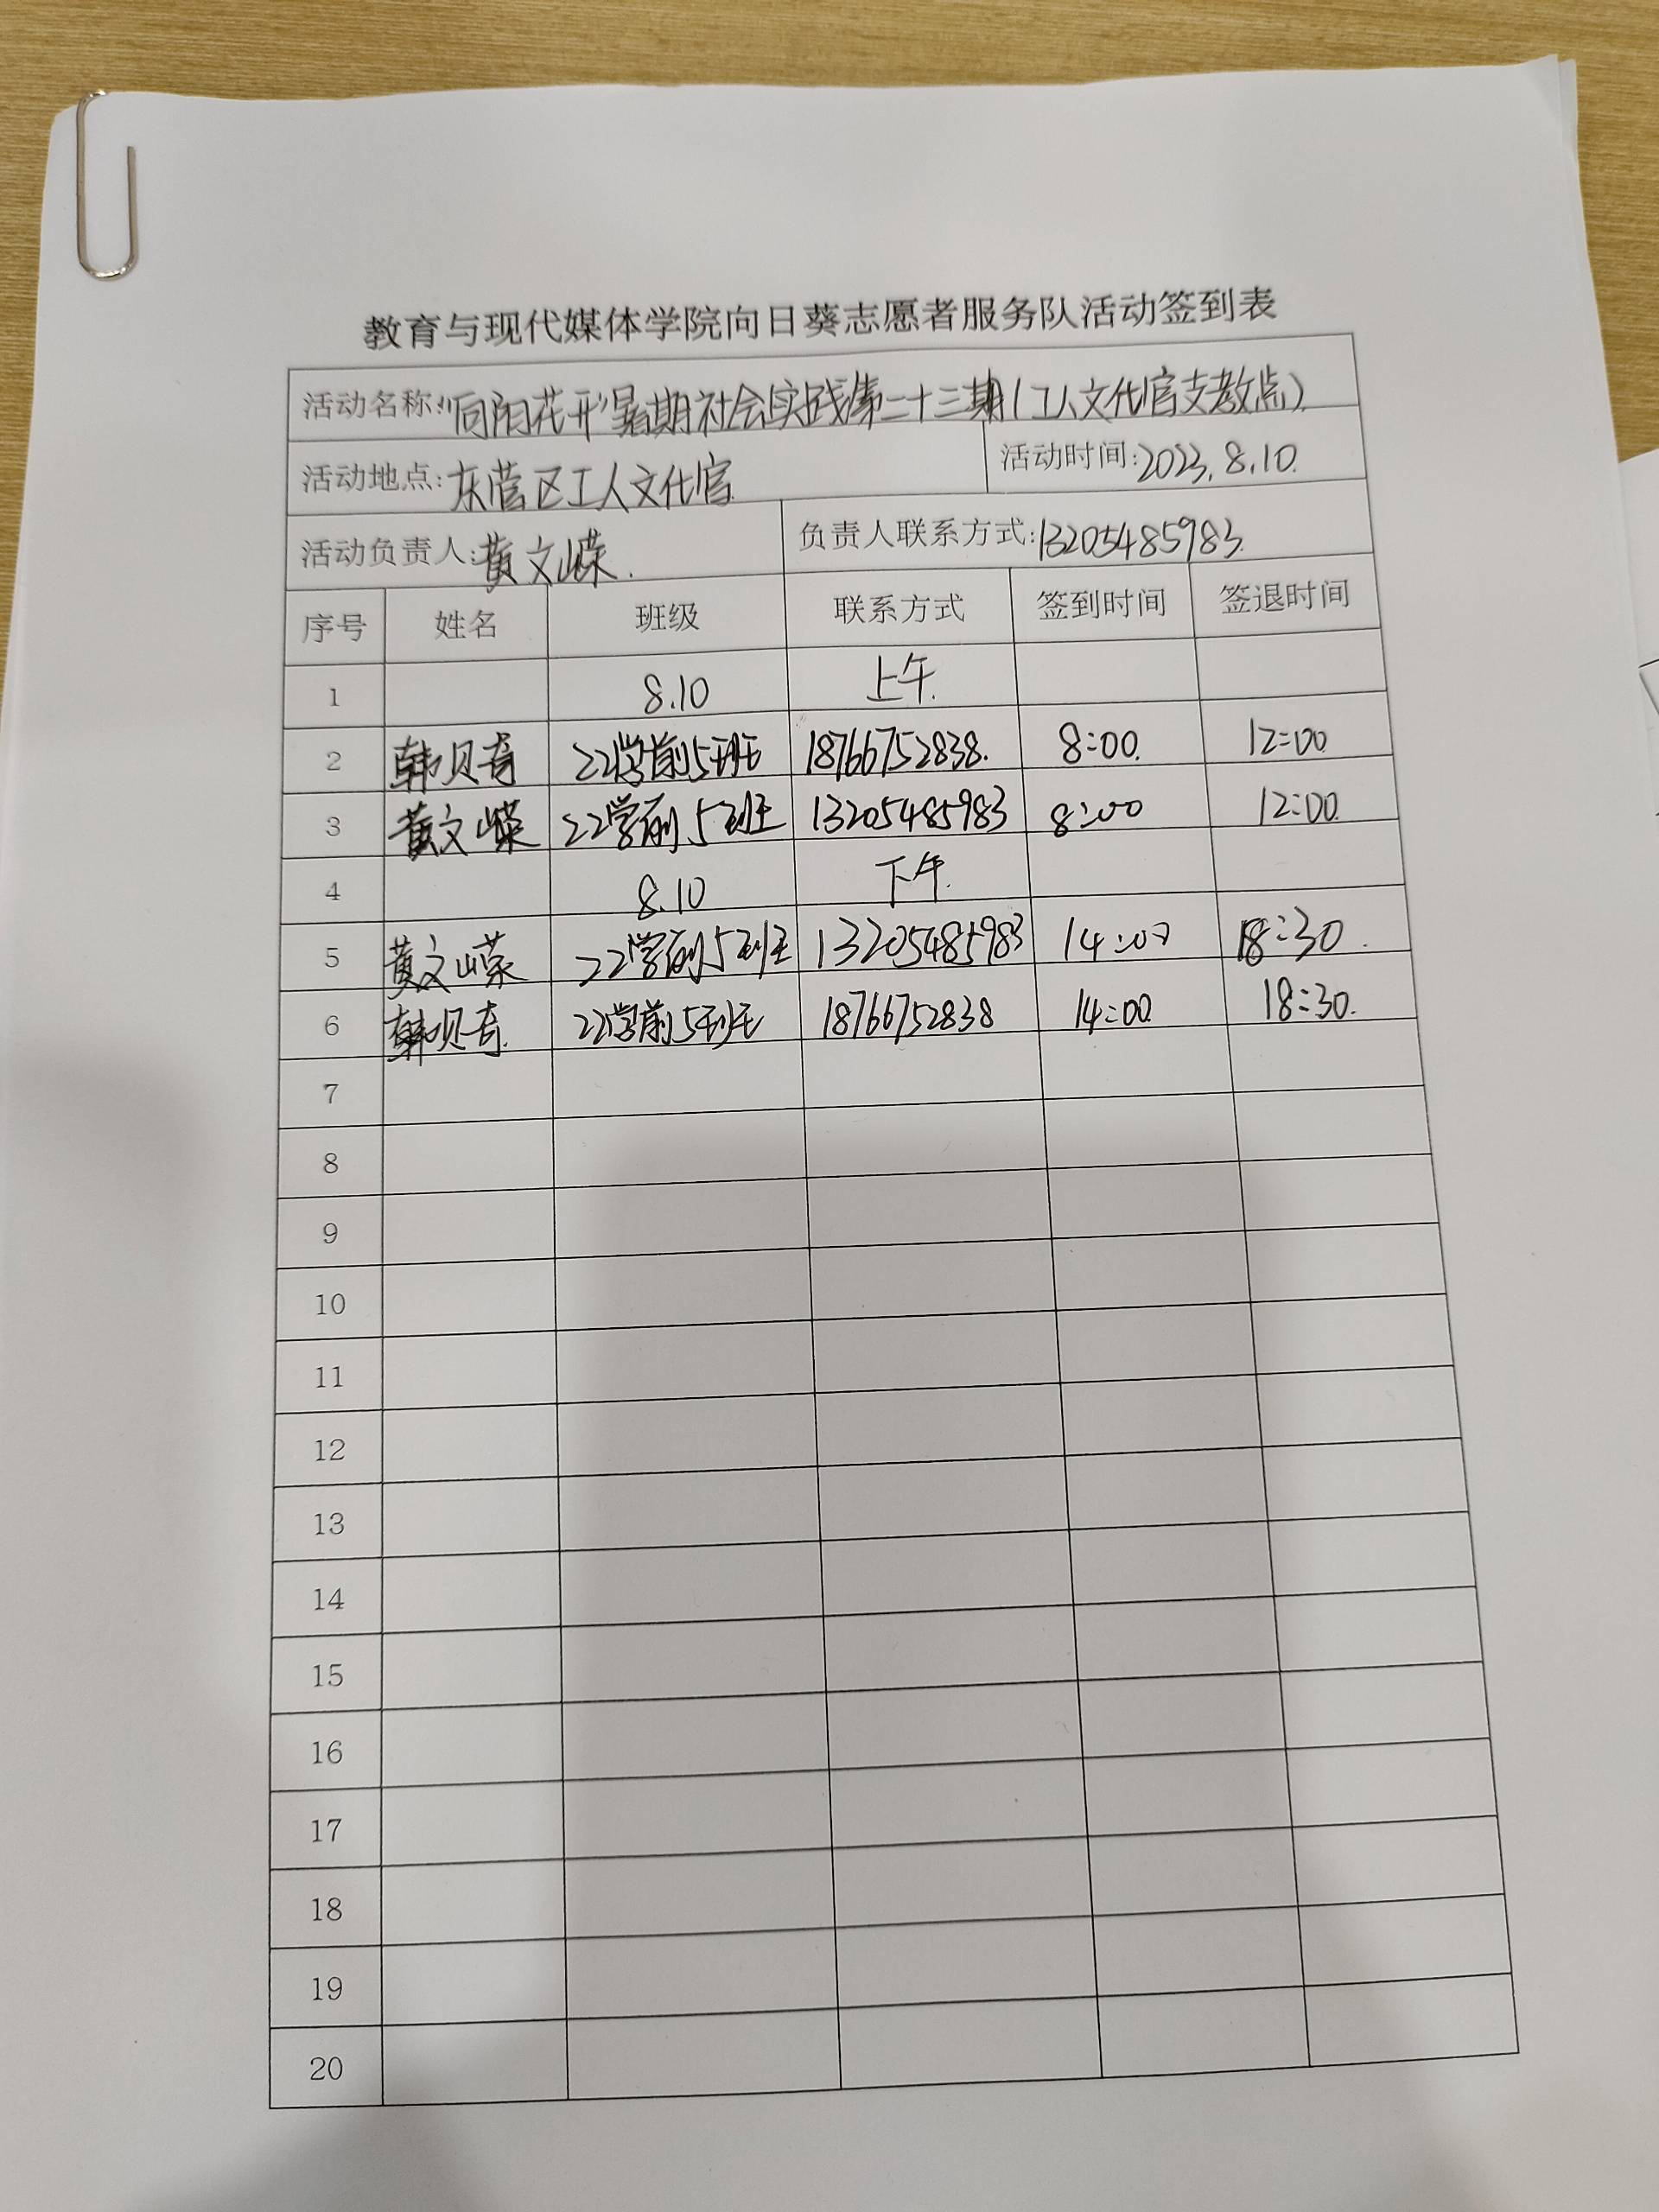 教育与现代媒体学院向日葵志愿者服务队活动签到表
活动名称:"向阳花开"暑期社会实践第二十三期(工人文化宫支教点)
活动地点:东营区工人文化宫 活动时间:2023.8.10.
活动负责人:黄文嵘. 负责人联系方式:13205485983.
序号 姓名 班级 联系方式 签到时间 签退时间
1 8.10 上午.
2 韩贝奇 22学前5班 18766752838. 8:00. 12:00
3 黄文嵘 22学前5班 13205485983 8:00 12:00.
4 8.10 下午.
5 黄文嵘 22学前5班 13205485983 14:00 18:30.
6 韩贝奇. 22学前5班 18766752838 14:00. 18:30.
7
8
9
10
11
12
13
14
15
16
17
18
19
20